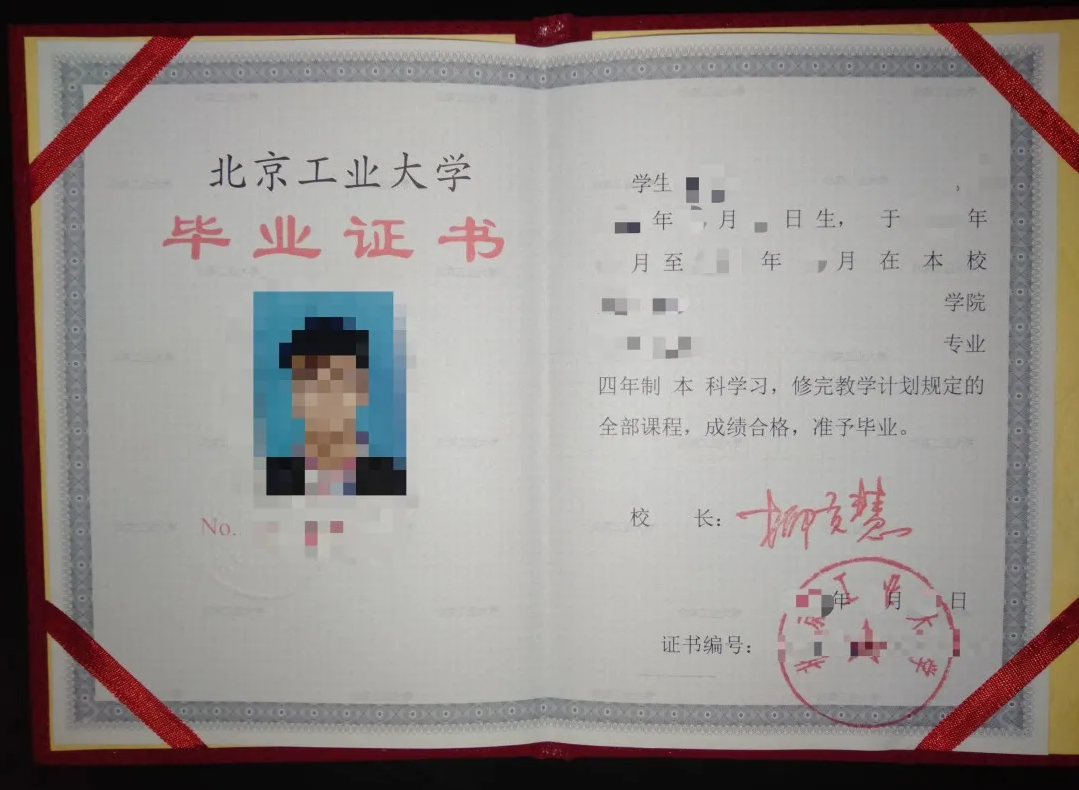 北京工业大学
毕业证书
No.
学生 ,
年 月 日生, 于 年
月至 年 月在本校
学院
专业
四年制 本 科学习，修完教学计划规定的
全部课程，成绩合格，准予毕业。
校 长：
年 月 日
证书编号：
北京工业大学